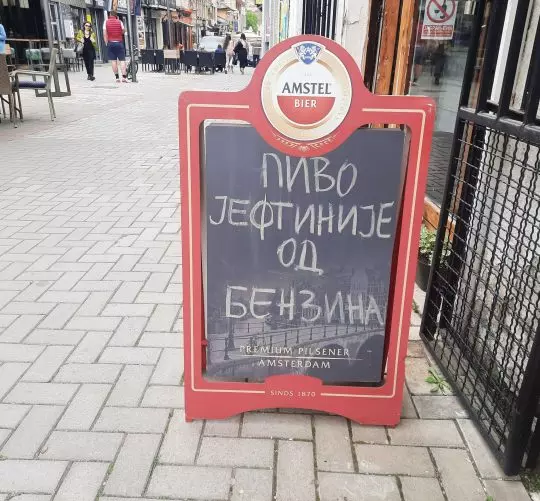 AMSTEL
BIER
ПИВО
ЈЕФТИНИЈЕ
ОД
БЕНЗИНА
PREMIUM PILSENER
AMSTERDAM
SINDS 1870